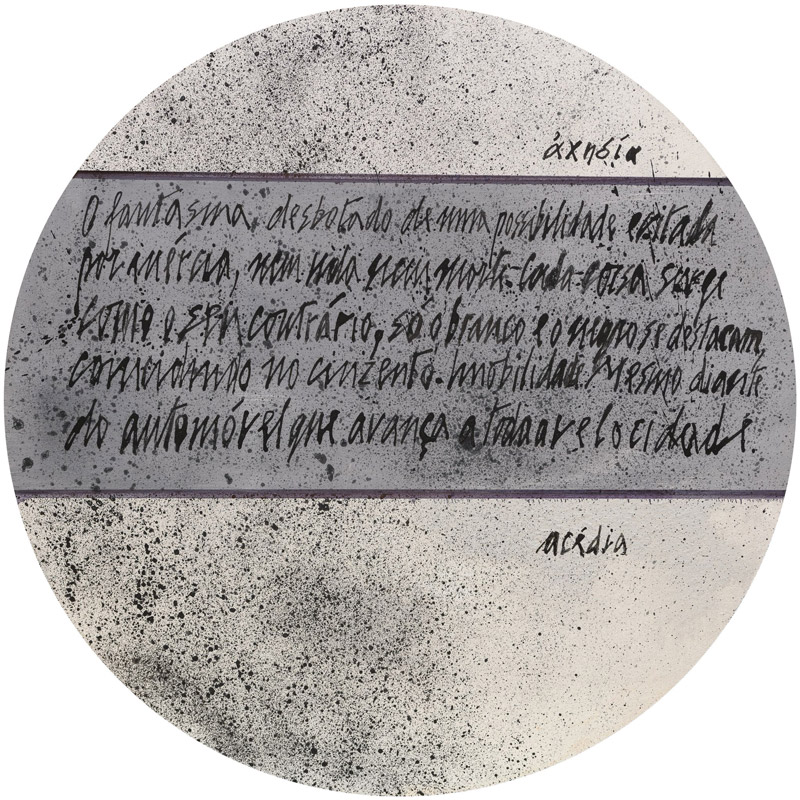 ἀχηδία
O fantasma, desbotado de uma possibilidade evitada
por inércia, nem vida nem morte. Cada coisa surge
como o seu contrário, só o branco e o negro se destacam,
coincidindo no cinzento. Imobilidade. Mesmo diante
do automóvel que avança a toda a velocidade.
acédia